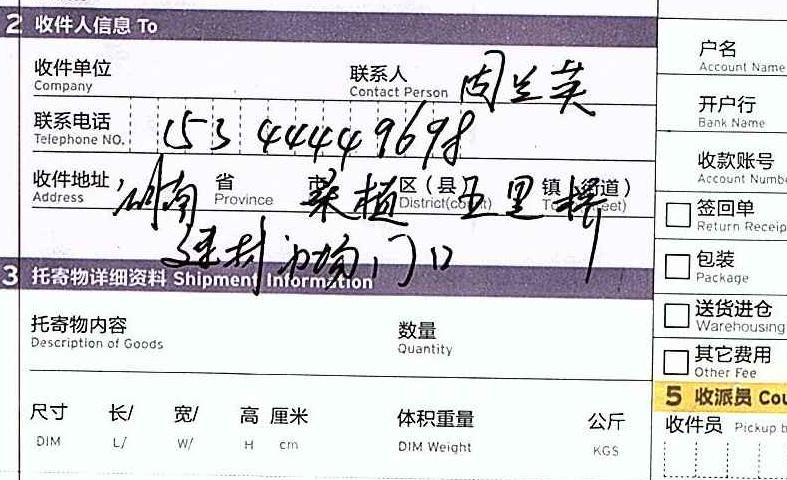 2 收件人信息 To
收件单位
Company
联系人 周兰英
Contact Person
联系电话 15344449698
Telephone NO.
收件地址 湖南 省 市 桑植 区（县） 五里桥 镇（街道）
Address Province District(county) Town(street)
建材市场门口
3 托寄物详细资料 Shipment Information
托寄物内容
Description of Goods
数量
Quantity
尺寸 长/ 宽/ 高 厘米
DIM L/ W/ H cm
体积重量
DIM Weight
公斤
KGS
户名
Account Name
开户行
Bank Name
收款账号
Account Numb
签回单
Return Receip
包装
Package
送货进仓
Warehousing
其它费用
Other Fee
5 收派员 Cou
收件员 Pickup b